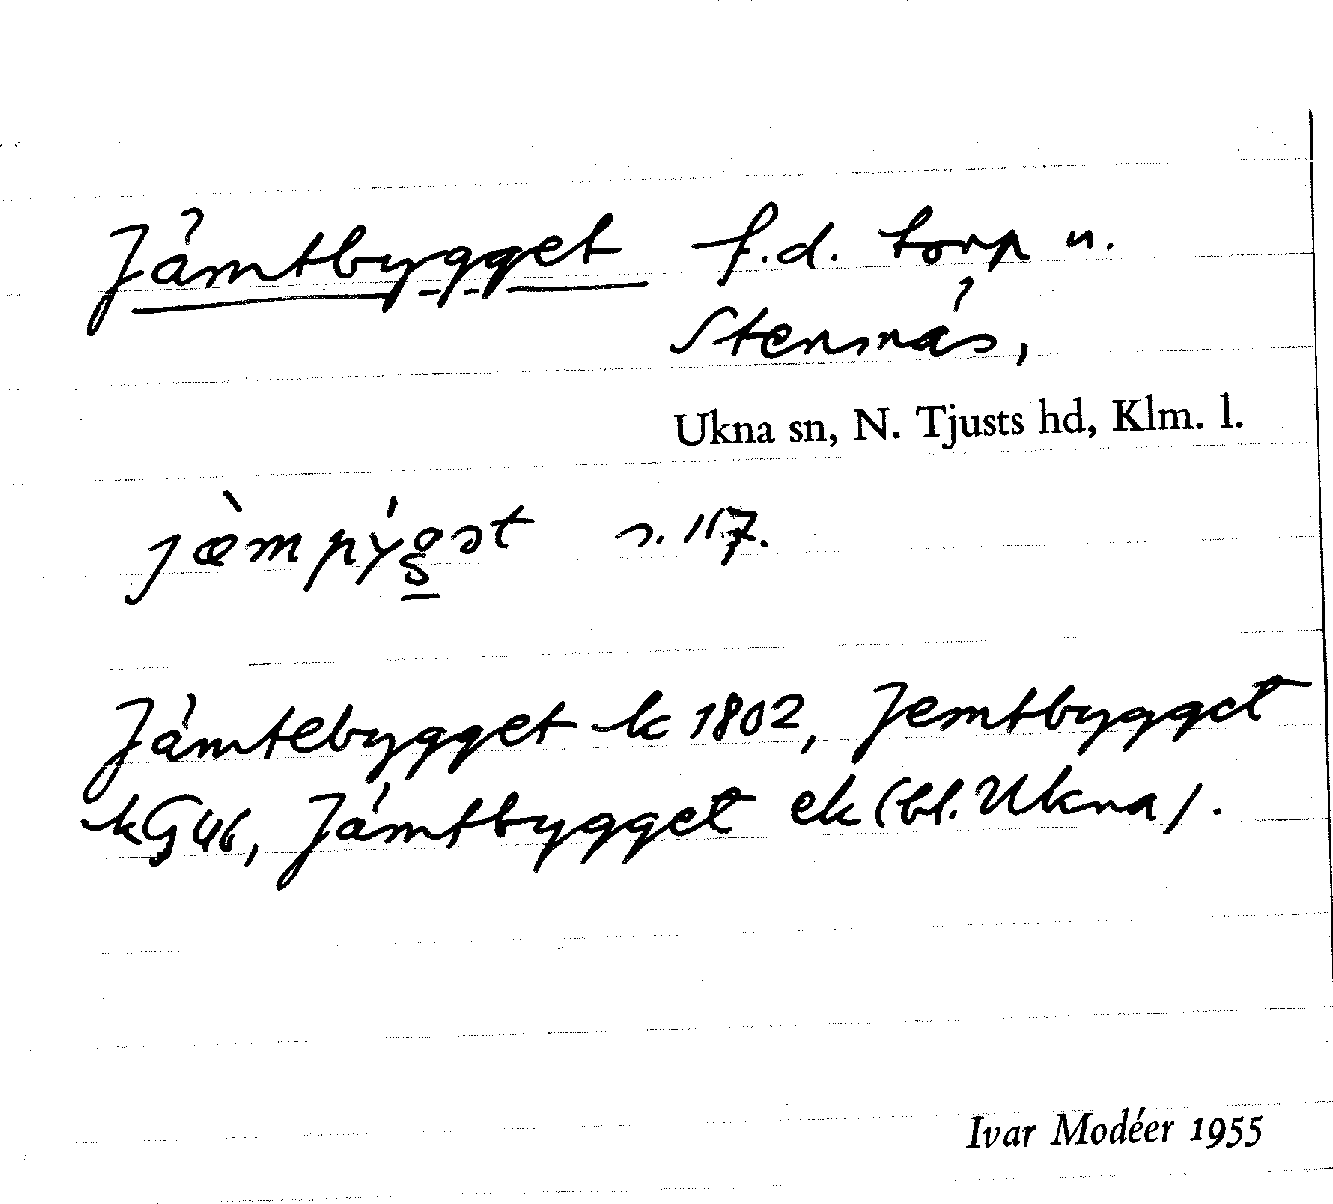 Jämtbygget f.d. torp u.
Stensnäs,
Ukna sn, N. Tjusts hd, Klm. l.
jæ̀mpýgət s. 117.
Jämtebygget k 1802, Jemtbygget
k G 46, Jämtbygget ek (bl. Ukna).
Ivar Modéer 1955